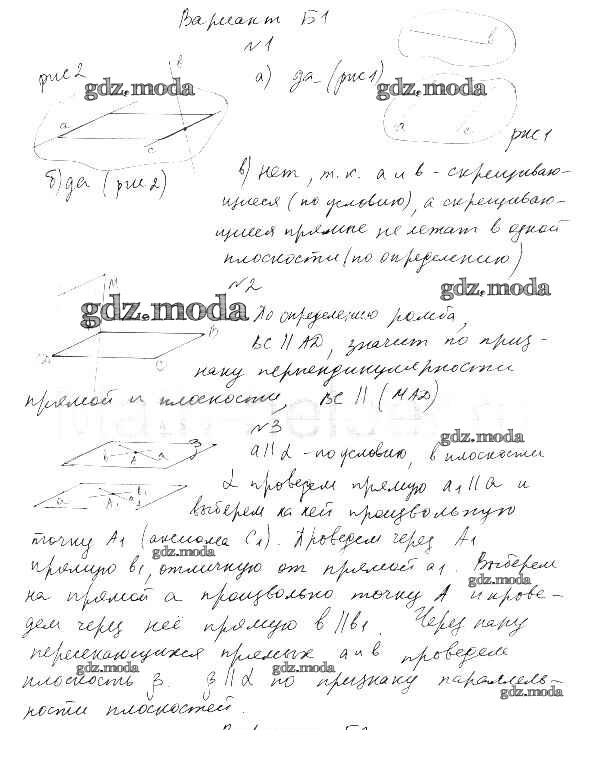 Вариант Б1
№1
рис 2
а) да (рис 1)
в
а
с
рис 1
а
с
б) да (рис 2)
в) нет, т.к. а и в - скрещиваю-
щиеся (по условию), а скрещиваю-
щиеся прямые не лежат в одной
плоскости (по определению)
№2
M
B
C
По определению ромба,
BC || AD, значит по приз-
наку перпендикулярности
прямой и плоскости, BC || (MAD)
№3
a || α - по условию, в плоскости
α проведем прямую a1 || a и
выберем на ней произвольную
точку A1 (аксиома C1). Проведем через A1
прямую b1, отличную от прямой a1. Выберем
на прямой a произвольно точку A и прове-
дем через неё прямую b || b1. Через пару
пересекающихся прямых a и b проведем
плоскость β. β || α по признаку параллель-
ности плоскостей.
gdz.moda
gdz.moda
gdz.moda
gdz.moda
gdz.moda
gdz.moda
gdz.moda
gdz.moda
gdz.moda
gdz.moda